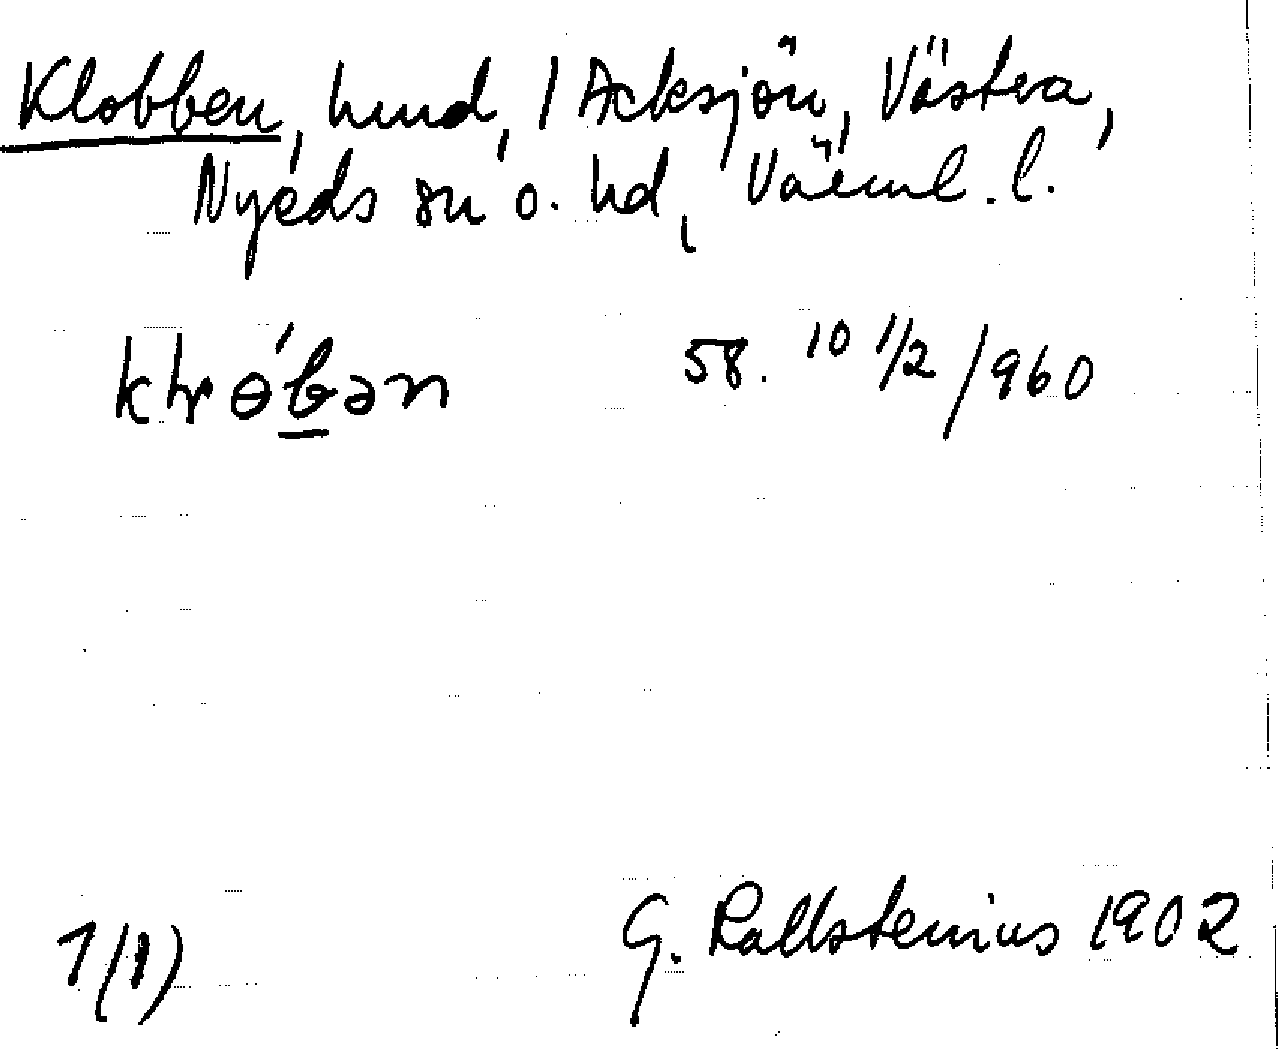 Klobben, hmd, i Acksjön, Västra,
Nyeds sn o. hd, Värml. l.
58. 10 1/2 /960
1/(1)
G. Kallstenius 1902